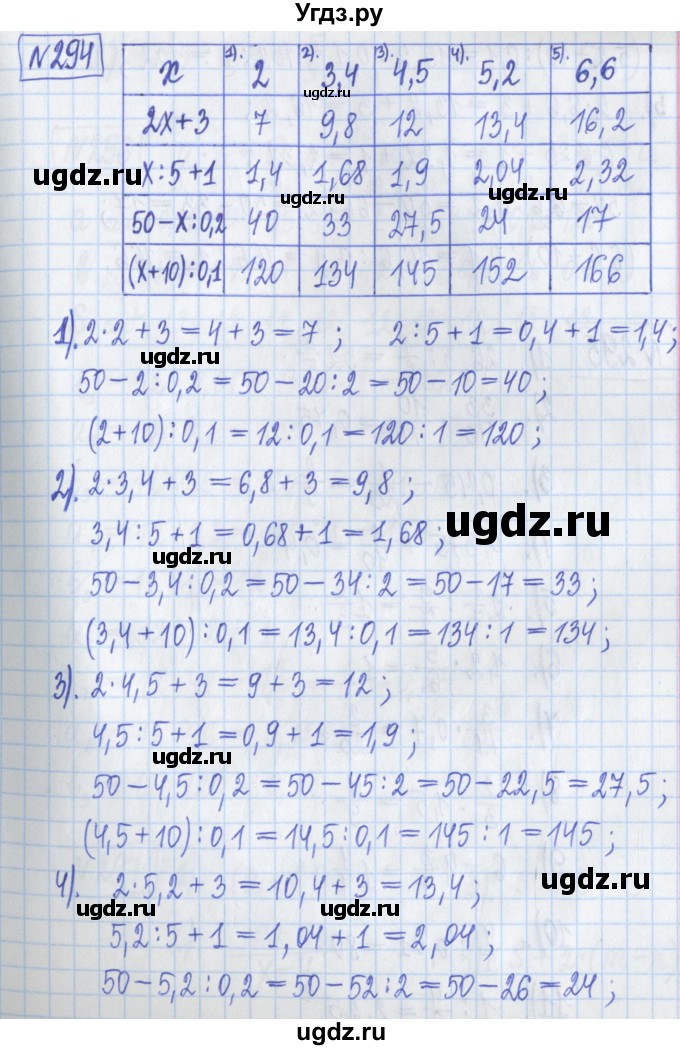 Угдз.ру
№294
x 1). 2 2). 3,4 3). 4,5 4). 5,2 5). 6,6
ugdz.ru
2x+3 7 9,8 12 13,4 16,2
ugdz.ru ugdz.ru
x:5+1 1,4 1,68 1,9 2,04 2,32
ugdz.ru ugdz.ru
50-x:0,2 40 33 27,5 24 17
(x+10):0,1 120 134 145 152 166
1). 2·2+3=4+3=7; 2:5+1=0,4+1=1,4;
ugdz.ru
50-2:0,2=50-20:2=50-10=40;
(2+10):0,1=12:0,1=120:1=120;
2). 2·3,4+3=6,8+3=9,8;
ugdz.ru
3,4:5+1=0,68+1=1,68;
ugdz.ru
50-3,4:0,2=50-34:2=50-17=33;
(3,4+10):0,1=13,4:0,1=134:1=134;
3). 2·4,5+3=9+3=12;
4,5:5+1=0,9+1=1,9;
ugdz.ru
50-4,5:0,2=50-45:2=50-22,5=27,5;
(4,5+10):0,1=14,5:0,1=145:1=145;
4). 2·5,2+3=10,4+3=13,4;
ugdz.ru
ugdz.ru ugdz.ru
5,2:5+1=1,04+1=2,04;
50-5,2:0,2=50-52:2=50-26=24;
ugdz.ru